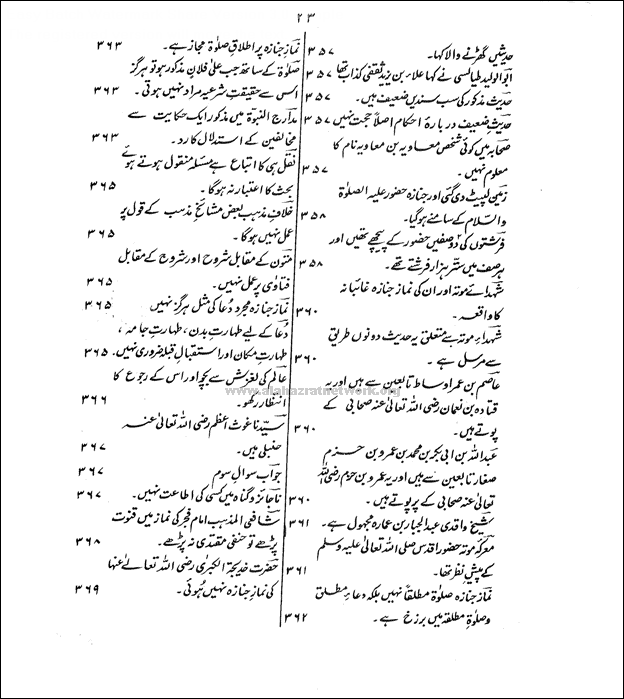 ۲۳
حدیثیں گھڑنے والا کہا۔ ۳۵۷
ابوالولید طیالسی نے کہا علاء بن یزید ثقفی کذاب تھا ۳۵۷
حدیث مذکور کی سب سندیں ضعیف ہیں۔ ۳۵۷
حدیث ضعیف دربارۂ احکام اصلاً حجت نہیں ۳۵۷
صحابہ میں کوئی شخص معاویہ بن معاویہ نام کا
معلوم نہیں۔ ۳۵۷
زمین لپیٹ دی گئی اور جنازہ حضور علیہ الصلوٰۃ
والسلام کے سامنے ہوگیا۔ ۳۵۸
فرشتوں کی دو صفیں حضور کے پیچھے تھیں اور
ہر صف میں ستر ہزار فرشتے تھے۔ ۳۵۸
شہدائے موتہ اور ان کی نماز جنازہ غائبانہ
کا واقعہ۔ ۳۶۰
شہداءِ موتہ سے متعلق یہ حدیث دونوں طریق
سے مرسل ہے۔ ۳۶۰
عاصم بن عمر اوساط تابعین سے ہیں اور یہ
قتادہ بن نعمان رضی اللہ تعالٰی عنہ صحابی کے
پوتے ہیں۔ ۳۶۰
عبداللہ بن ابی بکر بن محمد بن عمرو بن حزم
صغار تابعین سے ہیں اور یہ عمرو بن حزم رضی اللہ
تعالٰی عنہ صحابی کے پرپوتے ہیں۔ ۳۶۰
شیخ واقدی عبدالجبار بن عمارہ مجہول ہے۔ ۳۶۱
معرکہ موتہ حضور اقدس صلی اللہ تعالٰی علیہ وسلم
کے پیش نظر تھا۔ ۳۶۱
نماز جنازہ صلوٰۃ مطلقاً نہیں بلکہ دعاءِ مطلق
وصلوٰۃ مطلقہ میں برزخ ہے۔ ۳۶۲
نماز جنازہ پر اطلاقِ صلوٰۃ مجاز ہے۔ ۳۶۳
صلوٰۃ کے ساتھ جب علٰی فلان مذکور ہو تو ہرگز
اس سے حقیقت شرعیہ مراد نہیں ہوتی۔ ۳۶۳
مدارج النبوۃ میں مذکور ایک حکایت سے
مخالفین کے استدلال کا رد۔ ۳۶۳
نقل ہی کا اتباع ہے مسئلہ منقول ہوتے ہوئے
بحث کا اعتبار نہ ہوگا۔ ۳۶۵
خلاف مذہب بعض مشائخ مذہب کے قول پر
عمل نہیں ہوگا۔ ۳۶۵
متون کے مقابل شروح اور شروح کے مقابل
فتاوٰی پر عمل نہیں۔ ۳۶۵
نماز جنازہ مجرد دعا کی مثل ہرگز نہیں ۳۶۵
دعا کے لیے طہارتِ بدن، طہارتِ جامہ،
طہارتِ مکان اور استقبالِ قبلہ ضروری نہیں۔ ۳۶۵
عالم کی لغزش سے بچو اور اس کے رجوع کا
انتظار رکھو۔ ۳۶۶
سیدنا غوث اعظم رضی اللہ تعالٰی عنہ
حنبلی ہیں۔ ۳۶۷
جواب سوال سوم ۳۶۷
ناجائز و گناہ میں کسی کی اطاعت نہیں۔ ۳۶۷
شافعی المذہب امام فجر کی نماز میں قنوت
پڑھے تو حنفی مقتدی نہ پڑھے۔ ۳۶۸
حضرت خدیجۃ الکبرٰی رضی اللہ تعالٰی عنہا
کی نماز جنازہ نہیں ہوئی۔ ۳۶۹
www.alahazratnetwork.org